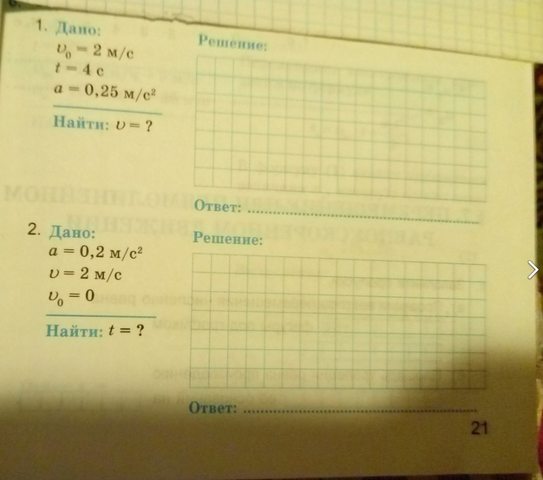 1. Дано:
υ₀ = 2 м/с
t = 4 с
a = 0,25 м/с²
Найти: υ = ?
Решение:
Ответ:
2. Дано:
a = 0,2 м/с²
υ = 2 м/с
υ₀ = 0
Найти: t = ?
Решение:
Ответ:
21